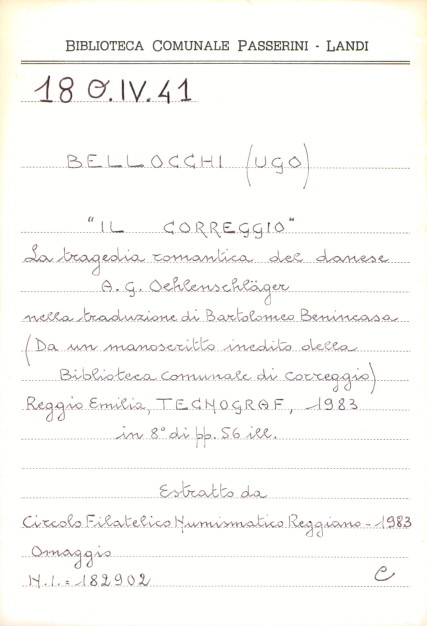 BIBLIOTECA COMUNALE PASSERINI - LANDI
18 O.IV.41
BELLOCCHI (UGO)
"IL CORREGGIO"
La tragedia romantica del danese
A. G. Oehlenschläger
nella traduzione di Bartolomeo Benincasa
(Da un manoscritto inedito della
Biblioteca Comunale di Correggio)
Reggio Emilia, TECNOGRAF, 1983
in 8° di pp. 56 ill.
Estratto da
Circolo Filatelico Numismatico Reggiano - 1983
Omaggio
N.I. = 182902
C